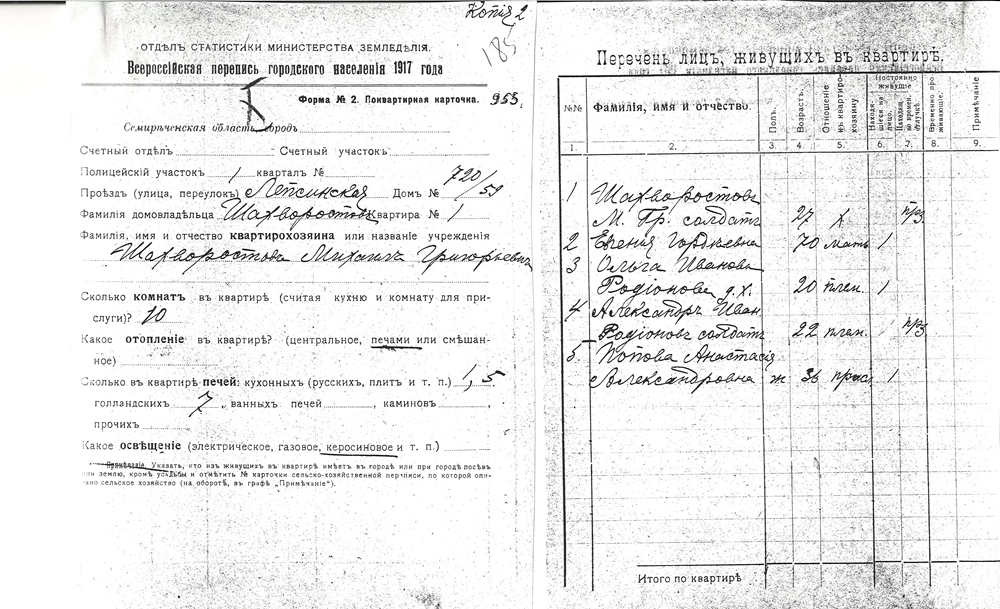 Копія 2
185
ОТДѢЛЪ СТАТИСТИКИ МИНИСТЕРСТВА ЗЕМЛЕДѢЛІЯ.
Всероссійская перепись городского населенія 1917 года
Форма № 2. Поквартирная карточка. 955.
Семирѣченская область, городъ
Счетный отдѣлъ Счетный участокъ
Полицейскій участокъ 1 кварталъ № 720/59
Проѣздъ (улица, переулокъ) Лепсинская Домъ №
Фамилія домовладѣльца Шахворостовъ Квартира № 1
Фамилія, имя и отчество квартирохозяина или названіе учрежденія
Шахворостовъ Михаилъ Григорьевичъ
Сколько комнатъ въ квартирѣ (считая кухню и комнату для при-
слуги)? 10
Какое отопленіе въ квартирѣ? (центральное, печами или смѣшан-
ное)
Сколько въ квартирѣ печей: кухонныхъ (русскихъ, плитъ и т. п.) 1,5
голландскихъ 7, ванныхъ печей , каминовъ ,
прочихъ
Какое освѣщеніе (электрическое, газовое, керосиновое и т. п.)
Примѣчаніе. Указать, кто изъ живущихъ въ квартирѣ имѣетъ въ городѣ или при городѣ посѣвъ
или землю, кромѣ усадьбы и отмѣтить № карточки сельско-хозяйственной переписи, по которой опи-
сано сельское хозяйство (на оборотѣ, въ графѣ „Примѣчаніе“).
Перечень лицъ, живущихъ въ квартирѣ.
№№ Фамилія, имя и отчество. Полъ. Возрастъ. Отношеніе къ квартиро-хозяину. Постоянно живущіе Находя-щіеся на лицо. Находящ. во времен. отлучкѣ. Временно про-живающіе. Примѣчаніе
1. 2. 3. 4. 5. 6. 7. 8. 9.
1 Шахворостовъ
М. Гр. солдатъ 27 х
2 Евгенія Гордѣевна 70 мать 1
3 Ольга Иванова
Родіонова д.х. 20 плем. 1
4 Александръ Иван.
Родіоновъ солдатъ 22 плем.
5. Попова Анастасія
Александровна ж 36 присл 1
Итого по квартирѣ